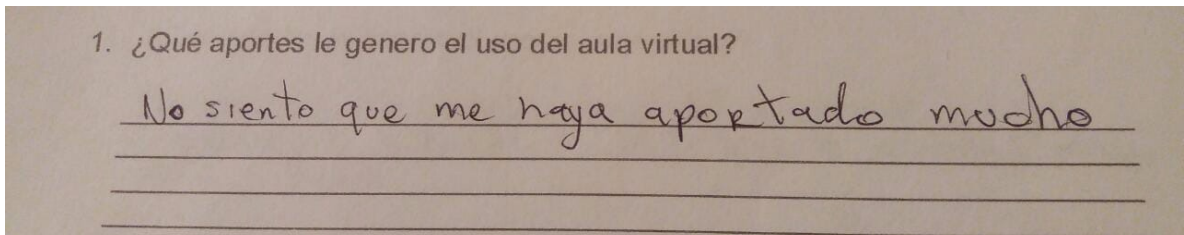 1. ¿Qué aportes le genero el uso del aula virtual?
No siento que me haya aportado mucho